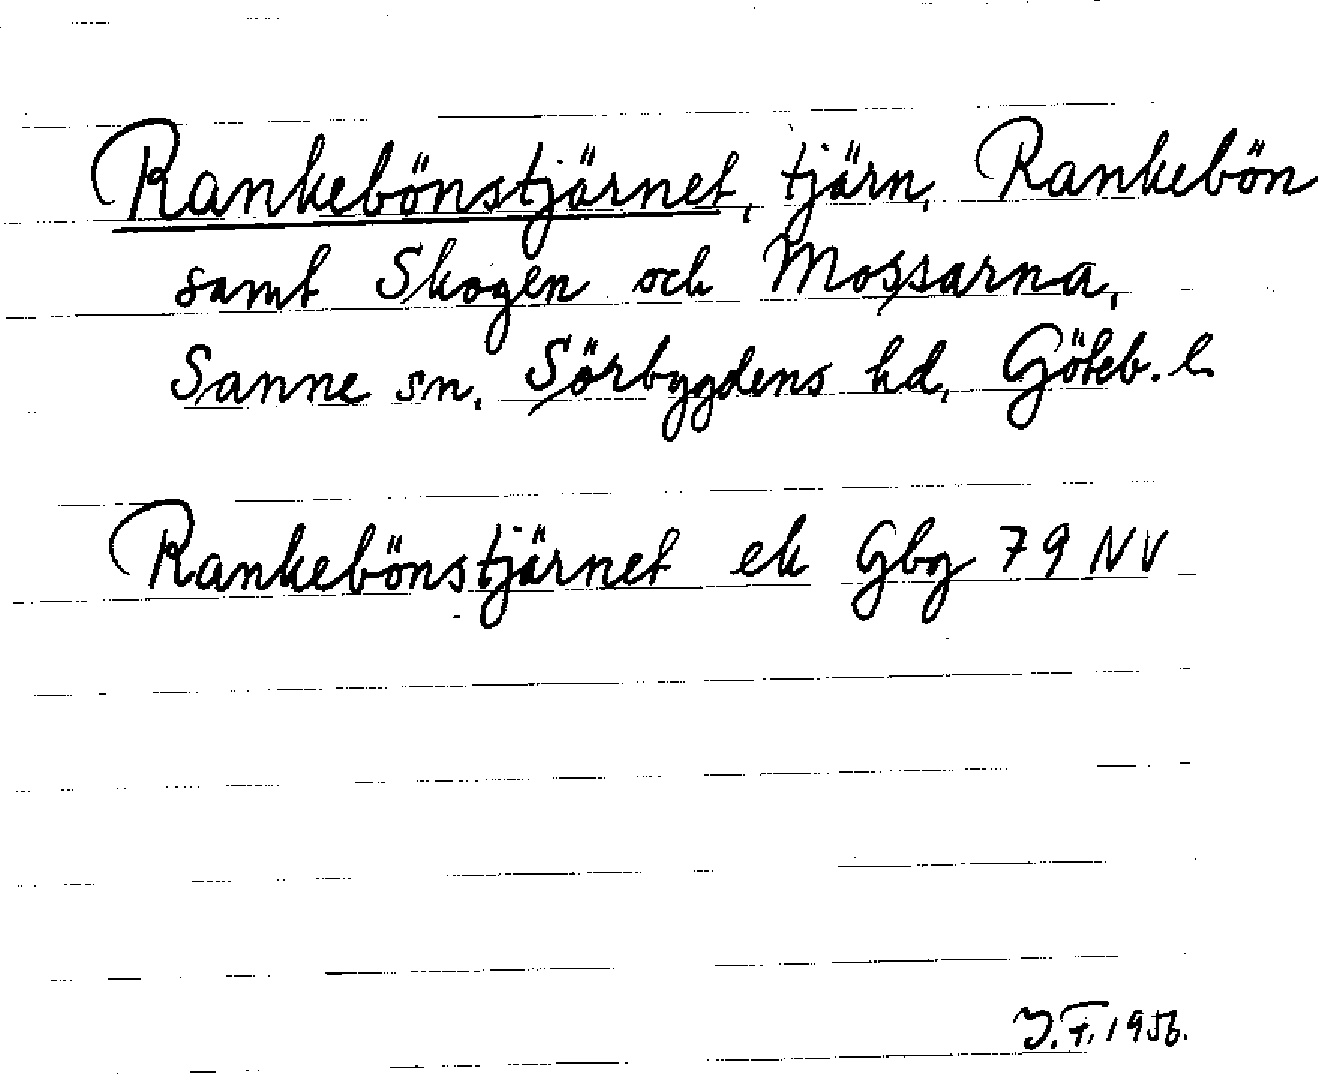 Rankebönstjärnet, tjärn, Rankebön
samt Skogen och Mossarna,
Sanne sn, Sörbygdens hd, Göteb. l.
Rankebönstjärnet ek Gbg 79 NV
J.F. 1956.